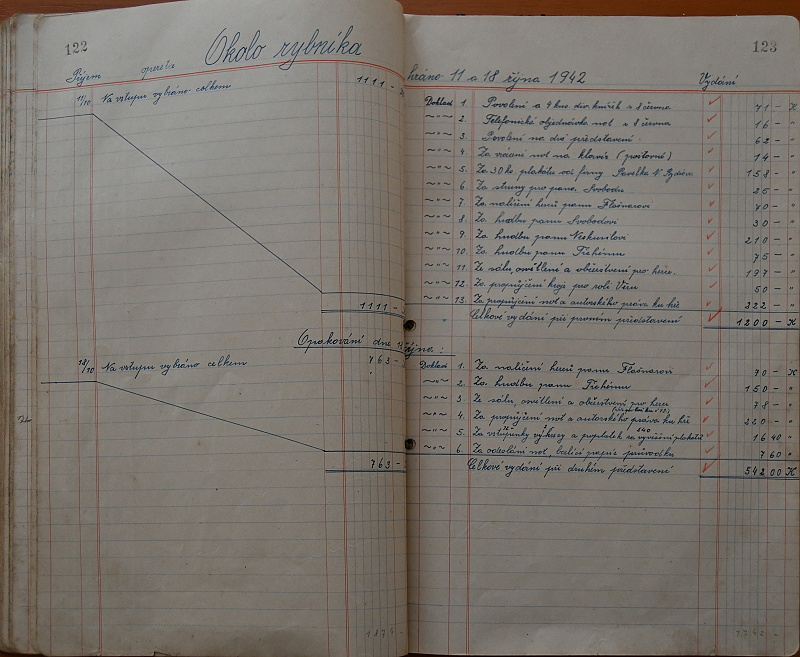 122
Příjem opereta Okolo rybníka
11/10 Na vstupu vybráno celkem 1111 -
1111 -
Opakování dne 18 října:
18/10 Na vstupu vybráno celkem 763 -
763 -
187
123
hráno 11 a 18 října 1942 Vydání
Doklad 1. Povolení a 4 kus. div. knížek z 8 června 71 - K
~"~ 2. Telefonická objednávka not z 8 června 16 - "
~"~ 3. Povolení na dvě představení 62 - "
~"~ 4. Za vrácení not na klavír (poštovné) 14 - "
~"~ 5. Za 30 ks. plakátů od firmy Pavelka N. Bydžov 158 - "
~"~ 6. Za struny pro pana Svobodu 25 - "
~"~ 7. Za nalíčení herců panu Flašnarovi 70 - "
~"~ 8. Za hudbu panu Svobodovi 30 - "
~"~ 9. Za hudbu panu Neskusilovi 210 - "
~"~ 10. Za hudbu panu Říhému 75 - "
~"~ 11. Ze sálu, osvětlení a občerstvení pro herce. 197 - "
~"~ 12. Za propůjčení kroje pro roli Věru 50 - "
~"~ 13. Za propůjčení not a autorského práva ku hře 222 - "
Celkové vydání při prvním představení 1200 - K
Doklad 1. Za nalíčení herců panu Flašnarovi 70 - K
~"~ 2. Za hudbu panu Říhému 150 - "
~"~ 3. Ze sálu, osvětlení a občerstvení pro herce 78 - "
~"~ 4. Za propůjčení not a autorského práva ku hře 220 - "
~"~ 5. Za vstupenky výkresy a poplatek za vyvěšení plakátů 16 40 "
~"~ 6. Za odeslání not, balící papír průvodka 7 60 "
Celkové vydání při druhém představení 542 00 K
1742 -